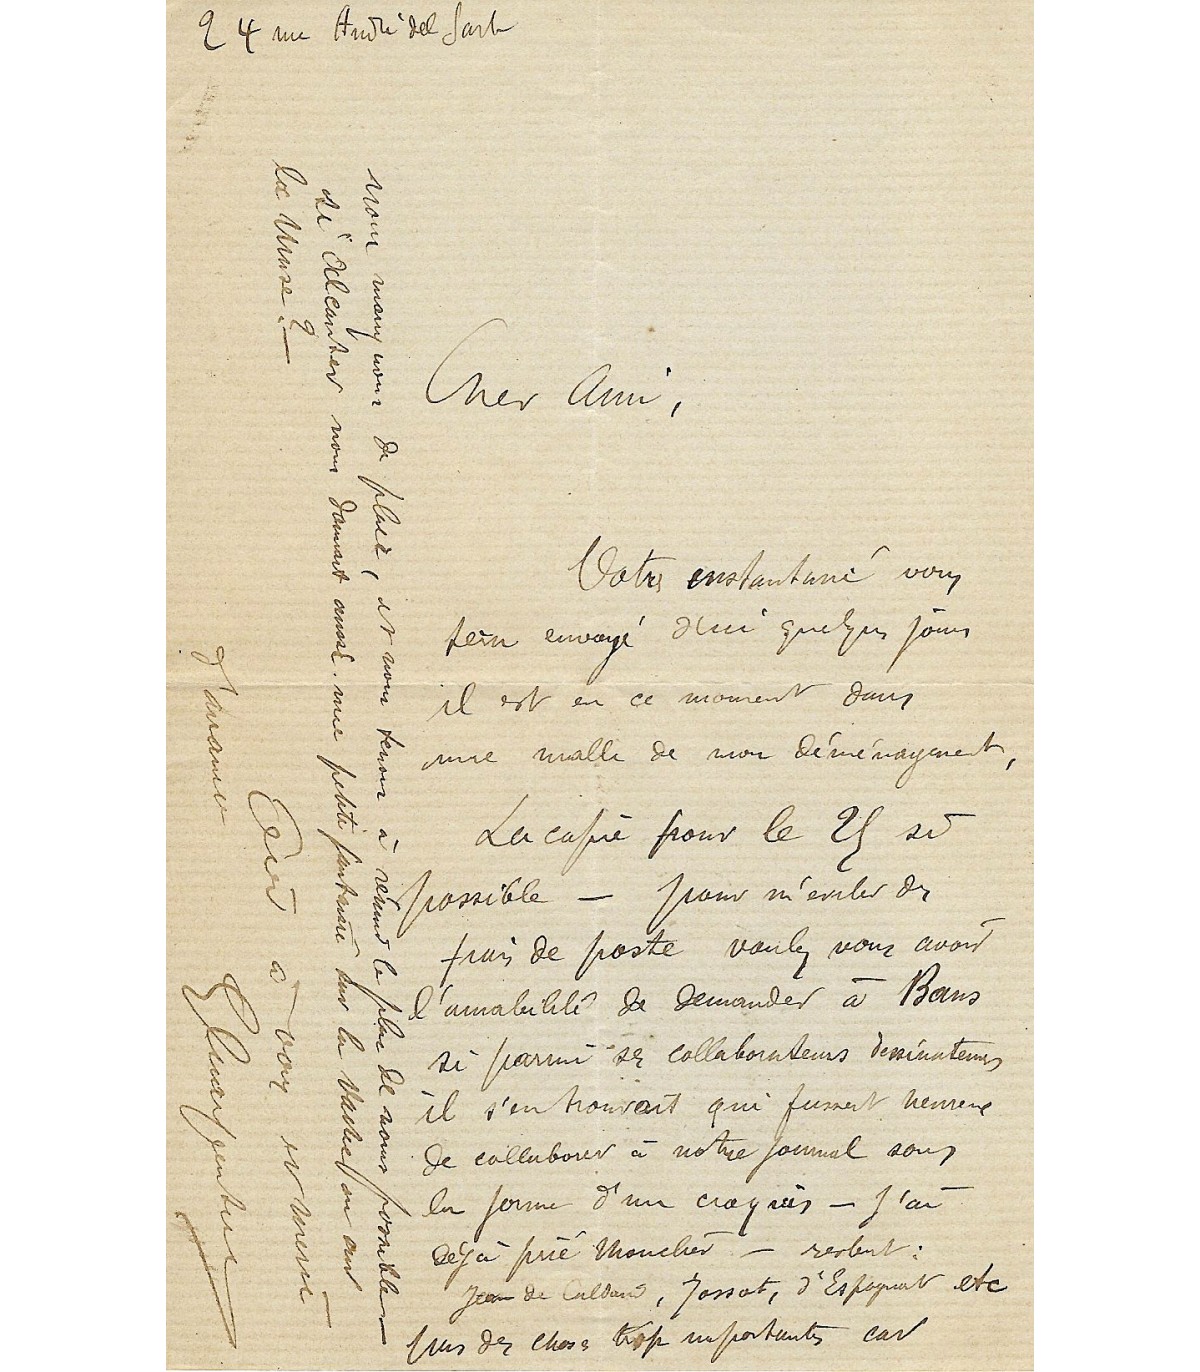 24 rue André del Sarte
Cher Ami,
Votre instantané vous
sera envoyé d'ici quelques jours
il est en ce moment dans
une malle de mon déménagement,
La copie pour le 25 si
possible — pour m'eviter des
frais de poste voulez vous avoir
l'amabilité de demander à Bans
si parmi ses collaborateurs dessinateurs
il s'en trouvait qui fussent heureux
de collaborer à notre journal sous
la forme d'un croquis — j'ai
déjà prié — restent :
Jean de Caldain, Jossot, d'Espagnat etc
pas des choses trop importantes car
nous manquons de place, et nous tenons à rendre le plus de nous possible —
si Alcanter nous donnait aussi une petite fantaisie sur la ou sur
la Muse ? —
d'avance
Ecrit à vous et merci